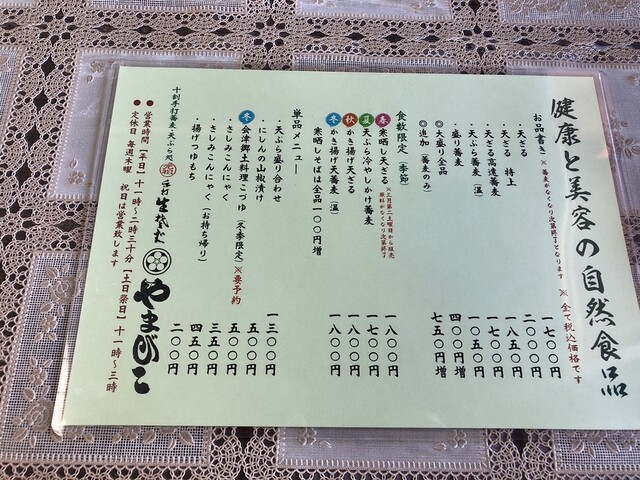 健康と美容の自然食品
お品書き ※蕎麦がなくなり次第終了となります ※全て税込価格です
・天ざる 一七〇〇円
・天ざる 特上 二〇〇〇円
・天ざる高遠蕎麦 一八五〇円
・天ぷら蕎麦(温) 一七〇〇円
・盛り蕎麦 一〇五〇円
◎大盛り全品 四〇〇円増
◎追加(蕎麦のみ) 七五〇円増
食数限定(季節)
春 寒晒し天ざる 一八〇〇円
※三月第二土曜日から販売
原料がなくなり次第終了
夏 天ぷら冷やしかけ蕎麦 一七〇〇円
秋 かき揚げ天ざる 一八〇〇円
冬 かき揚げ天蕎麦(温) 一八〇〇円
寒晒しそばは全品一〇〇円増
単品メニュー
・天ぷら盛り合わせ 一三〇〇円
・にしんの山椒漬け 五〇〇円
冬 会津郷土料理こづゆ(冬季限定)※要予約 五〇〇円
・さしみこんにゃく 三五〇円
・さしみこんにゃく(お持ち帰り) 四五〇円
・揚げつゆもち 二〇〇円
十割手打蕎麦・天ぷら処 生そば やまびこ
●営業時間【平日】十一時〜二時三十分【土日祭日】十一時〜三時
●定休日 毎週木曜 祝日は営業致します